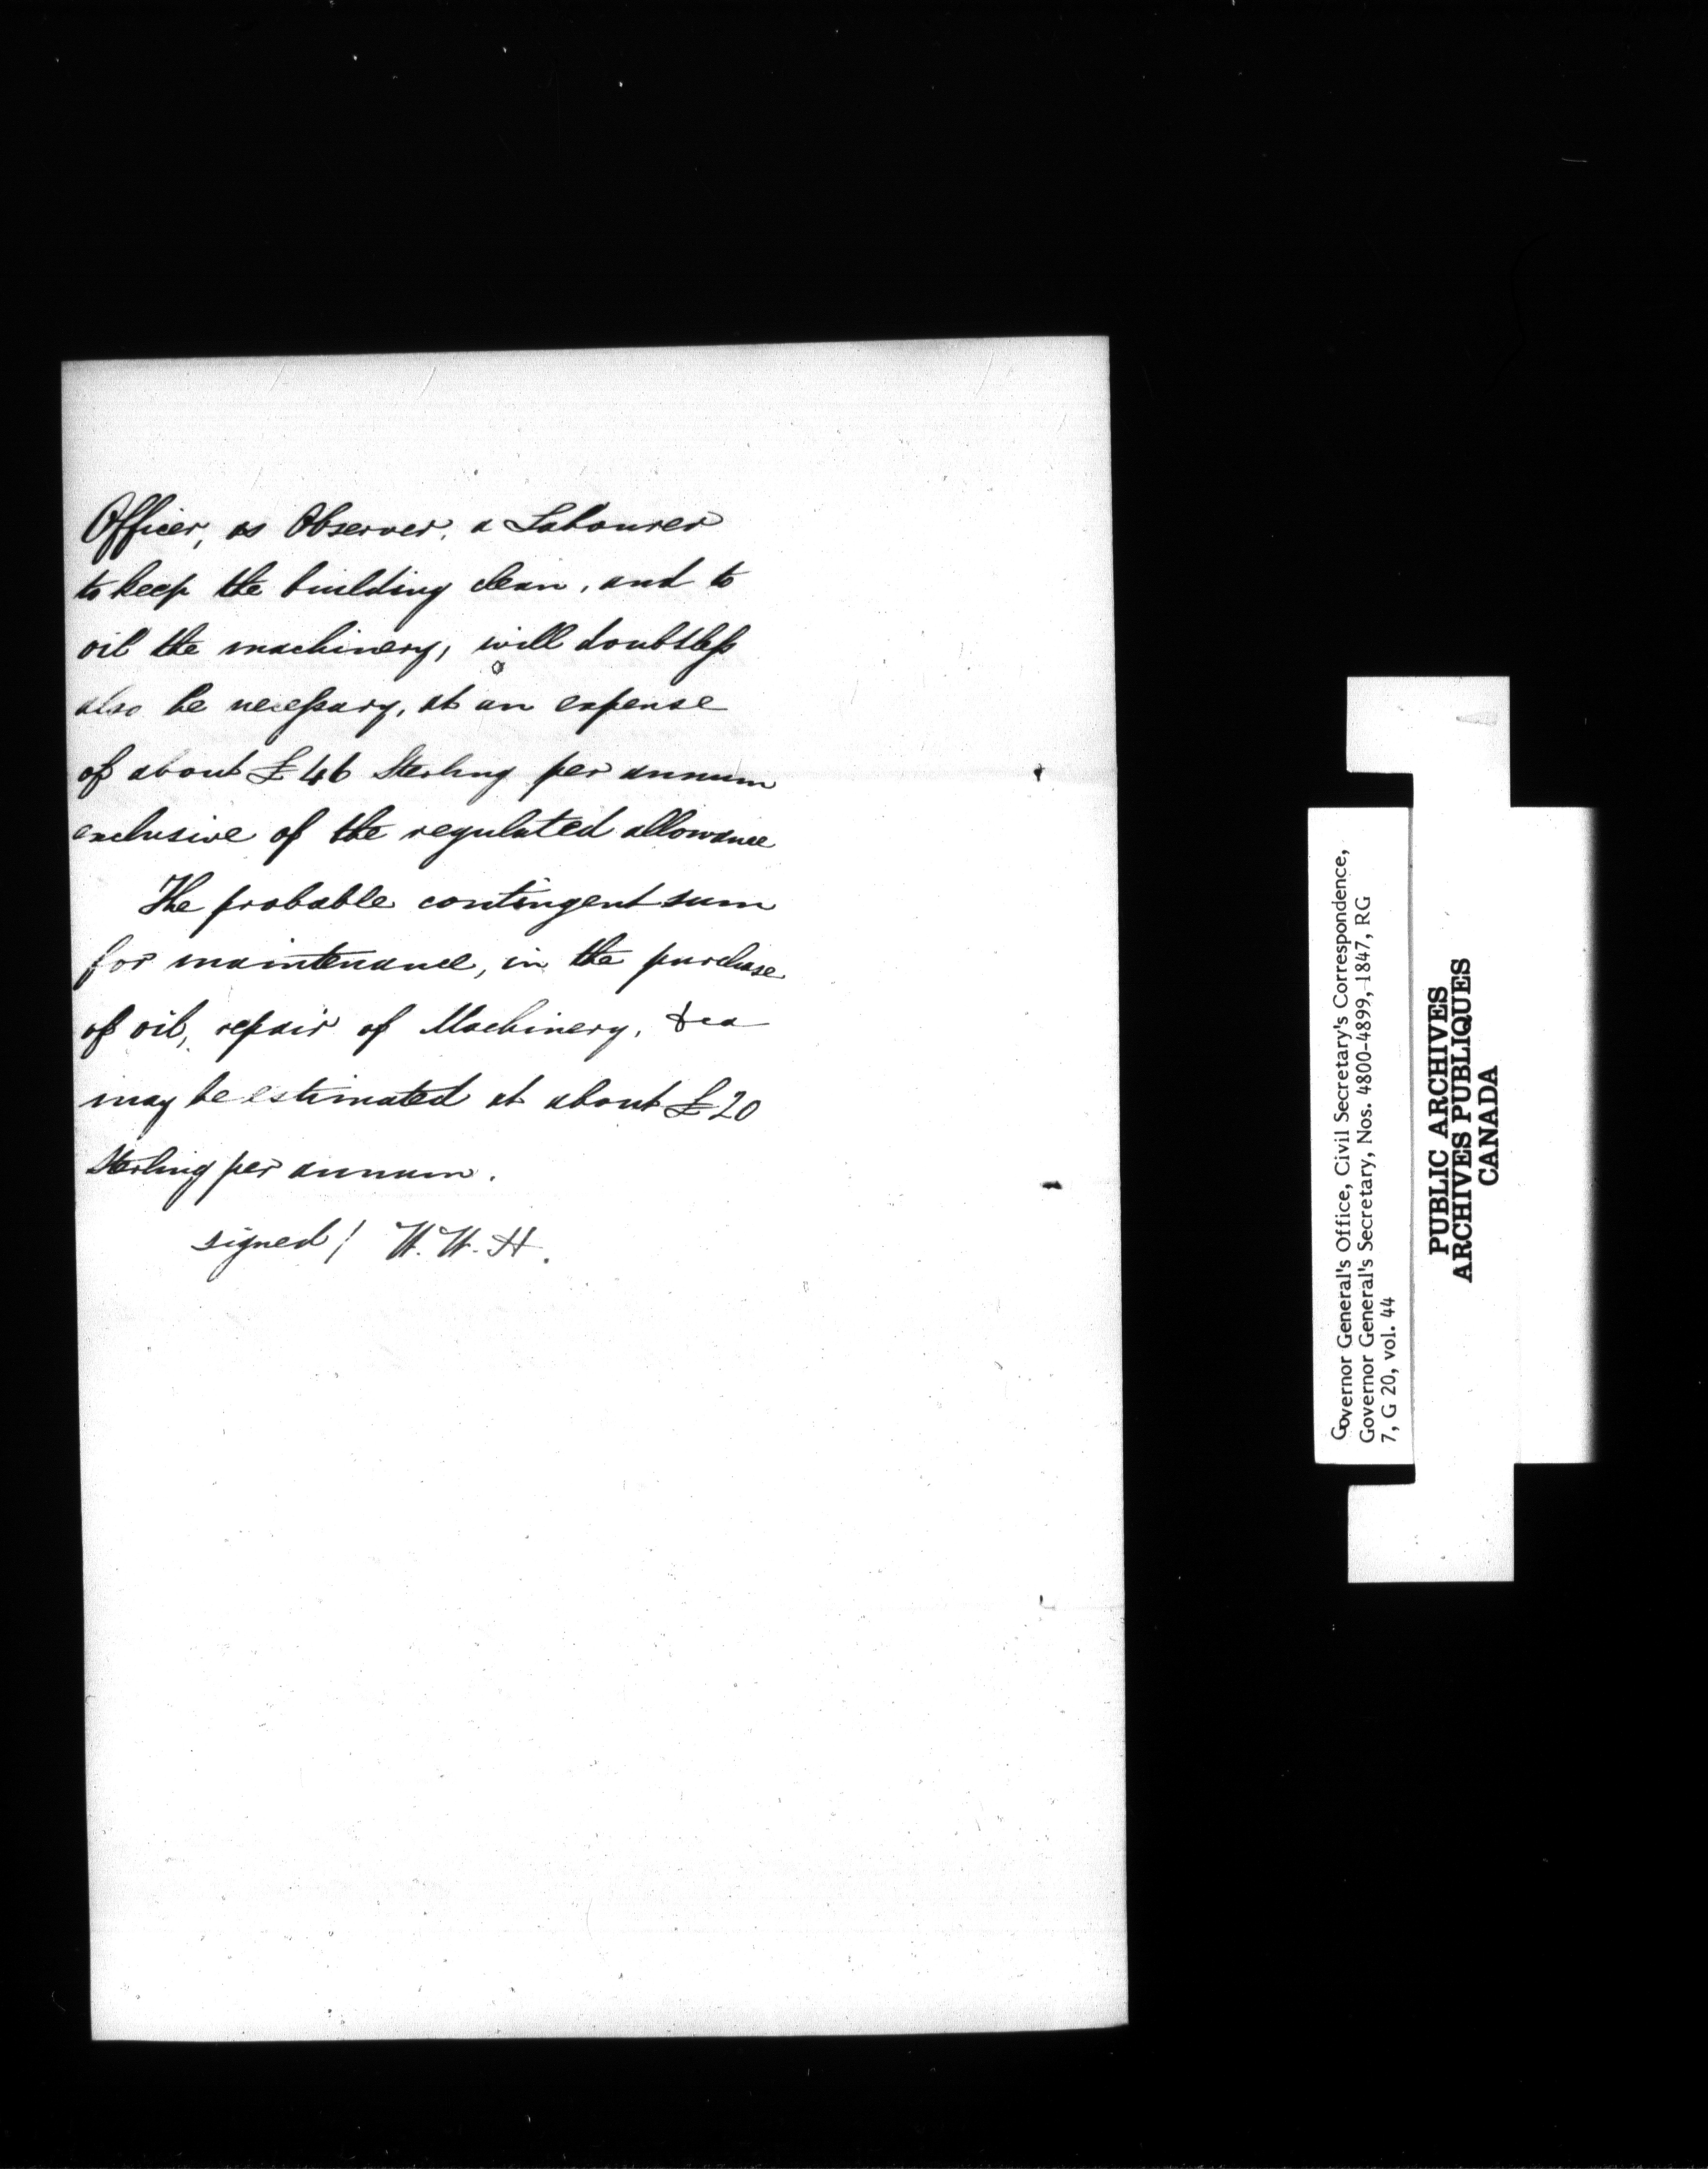 Officer, as Observer, a Labourer
to keep the building clean, and to
oil the machinery, will doubtless
also be necessary, at an expense
of about £46 Sterling per annum
exclusive of the regulated allowance
The probable contingent sum
for maintenance, in the purchase
of oil, repair of Machinery, &ca
may be estimated at about £20
Sterling per annum.
signed / W. W. H.
Governor General's Office, Civil Secretary's Correspondence,
Governor General's Secretary, Nos. 4800-4899, 1847, RG
7, G 20, vol. 44
PUBLIC ARCHIVES
ARCHIVES PUBLIQUES
CANADA